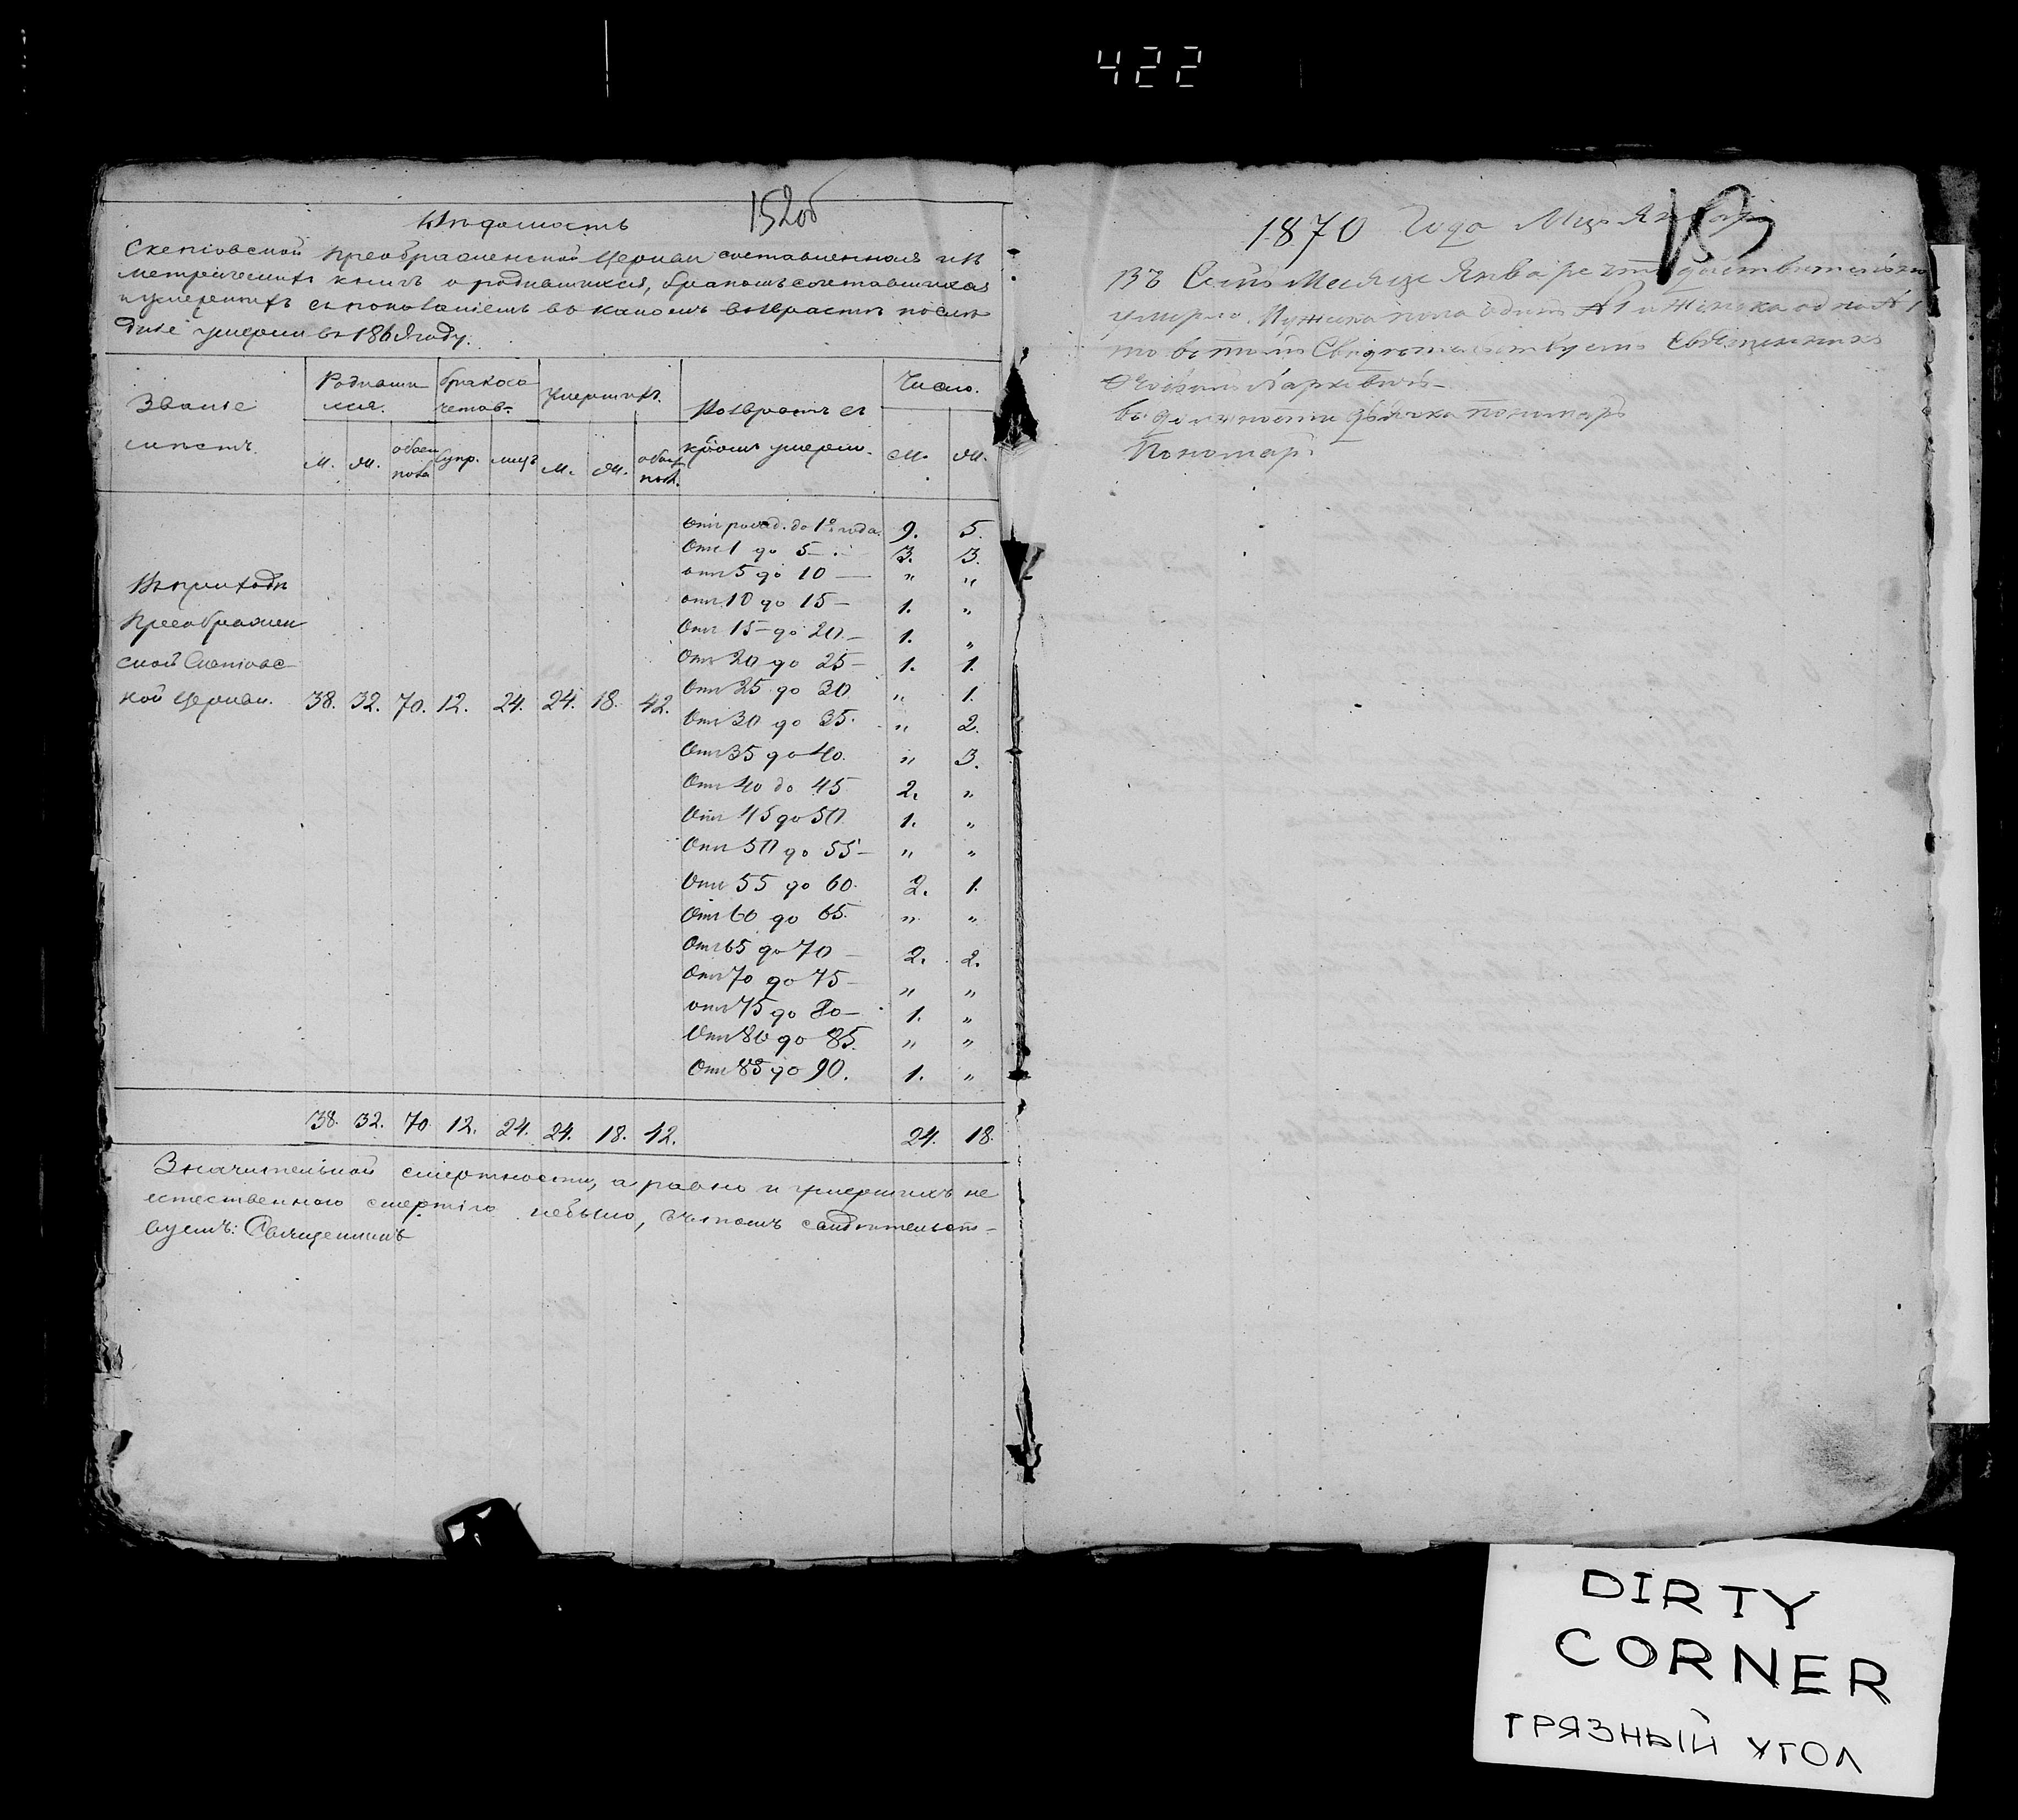 422
152об
Вѣдомость
Скепіовской Преображенской Церкви составленная изъ
метрическихъ книгъ о родившихся, бракомъ сочетавшихся
и умершихъ съ показаніемъ въ какомъ возврастѣ послѣ
дніе умерли въ 1869 году.
Званіе
мѣстъ.
Родивши
мся.
бракосо
четав-
умершихъ.
Возврастъ въ
коемъ умерли.
Число.
м. ж. обоего пола супр. лицъ м. ж. обоего пол. м. ж.
Отъ рожд. до 1го года. 9. 5.
Отъ 1 до 5 — 3. 3.
отъ 5 до 10 — " "
отъ 10 до 15 — 1. "
Отъ 15 до 20. — 1. "
Отъ 20 до 25 — 1. 1.
Отъ 25 до 30. " 1.
Отъ 30 до 35. " 2.
Отъ 35 до 40. " 3.
Отъ 40 до 45 2. "
Отъ 45 до 50. 1. "
Отъ 50 до 55 — " "
Отъ 55 до 60. 2. 1.
Отъ 60 до 65. " "
Отъ 65 до 70 — 2. 2.
Отъ 70 до 75 — " "
отъ 75 до 80 — 1. "
Отъ 80 до 85. " "
Отъ 85 до 90. 1. "
Въ приходѣ
Преображен
ской Скепіовс
кой Церкви. 38. 32. 70. 12. 24. 24. 18. 42.
38. 32. 70. 12. 24. 24. 18. 42. 24. 18.
Значительной смертности, а равно и умершихъ не
естественною смертію небыло, въ чемъ свидѣтельст-
вуетъ: Священникъ
1870 Года Мца Января
Въ Семъ Месяце Январе что действительно
умерло Мужска пола одинъ № 1 и Женска одна № 1
то въ томъ Свидетельствуемъ Священникъ
въ должности дьячка пономарь
Пономарь
DIRTY
CORNER
ГРЯЗНЫЙ УГОЛ